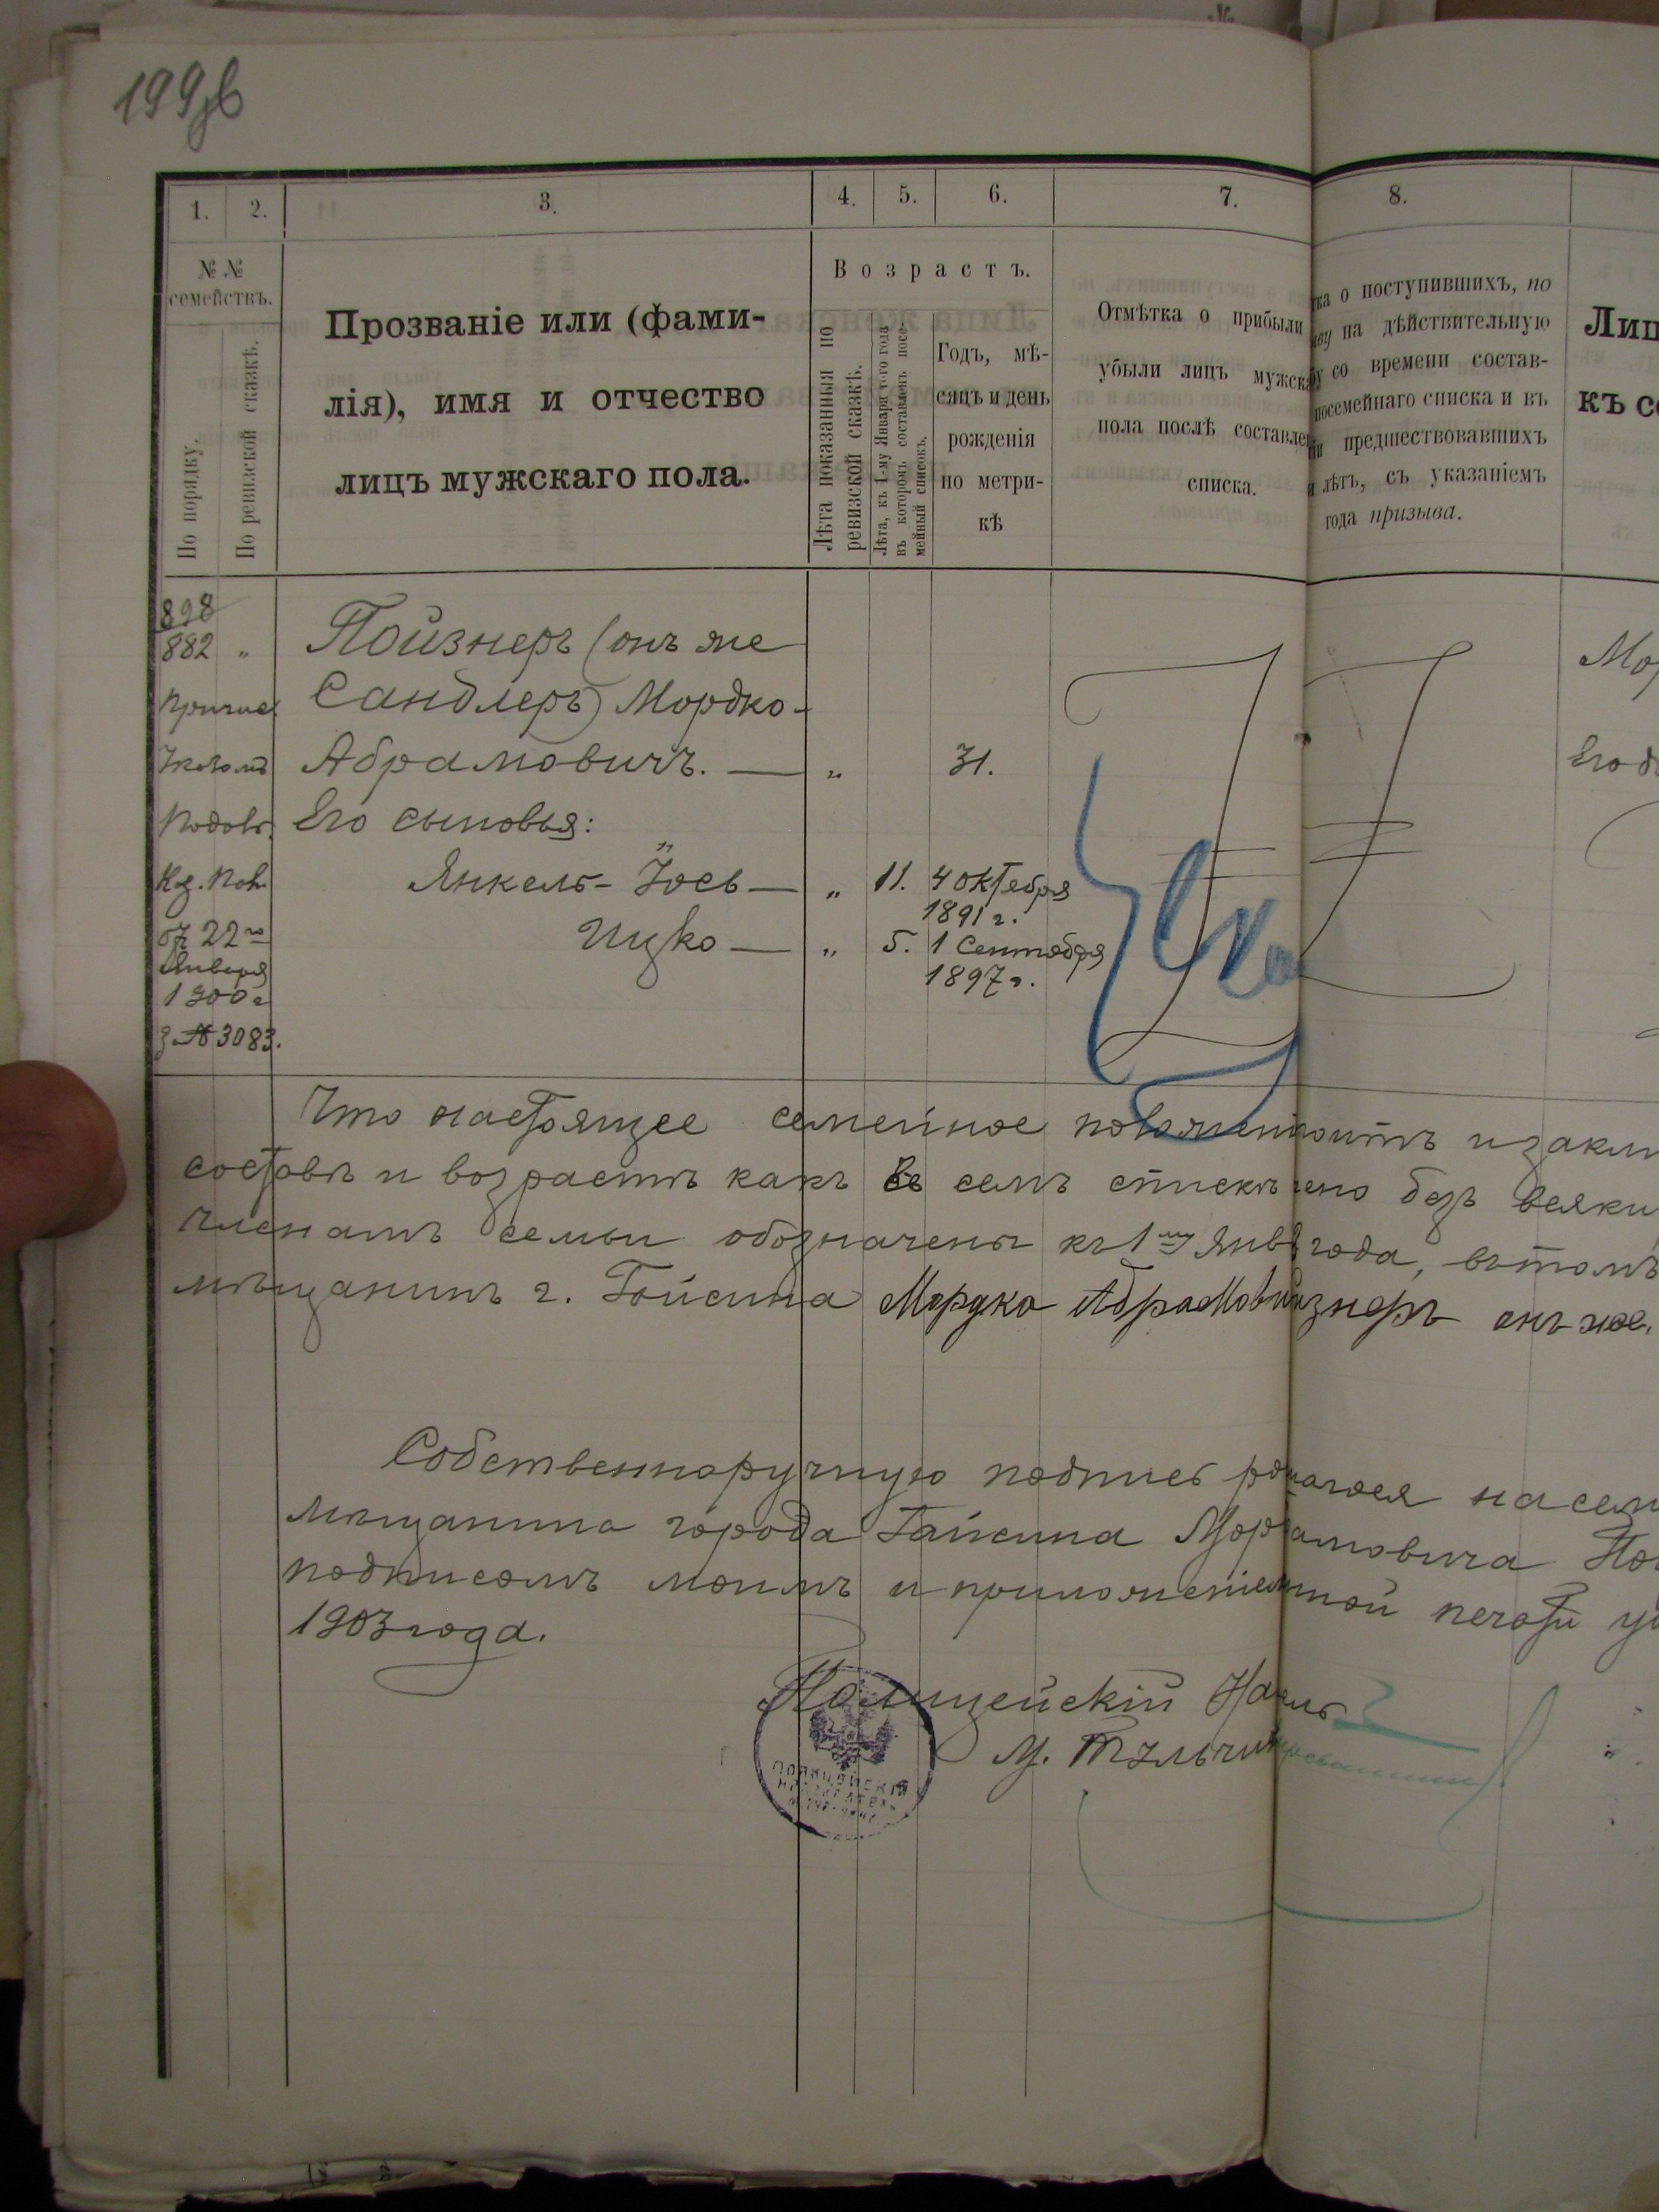 199об
1. 2. 3. 4. 5. 6. 7. 8.
№ №
семействъ.
По порядку.
По ревизской сказкѣ.
Прозваніе или (фами-
лія), имя и отчество
лицъ мужскаго пола.
Возрастъ.
Лѣта показанныя по
ревизской сказкѣ.
Лѣта, къ 1-му Января того года
въ которомъ составленъ посе-
мейный списокъ.
Годъ, мѣ-
сяцъ и день
рожденія
по метри-
кѣ
Отмѣтка о прибыли
убыли лицъ мужска
пола послѣ составле
списка.
тка о поступившихъ, по
ыву на дѣйствительную
бу со времени состав-
посемейнаго списка и въ
ни предшествовавшихъ
и лѣтъ, съ указаніемъ
года призыва.
Лиц
къ се
898
882 „
Причис
Указомъ
Подол.
Каз. Пал.
отъ 22го
Января
1900 г
за № 3083.
Пойзнеръ (онъ же
Сандлеръ) Мордко-
Абрамовичъ. — „ 31.
Его сыновья:
Янкель-Іось — „ 11. 4 октября
1891 г.
Ицко — „ 5. 1 Сентября
1897 г.
Мор
Его д
Что настоящее семейное положен итъ и заклю
составъ и возрастъ какъ въ семъ спискѣ ено безъ всяки
членамъ семьи обозначены къ 1му Янв года, въ томъ
мѣщанинъ г. Гайсина Мордко Абрамов изнеръ онъ же
Собственноручную подпись р агося на сем
мѣщанина города Гайсина Мор амовича По
подписомъ моимъ и приложеніем ной печати у
1903 года.
Полицейскій На ль
м. Тульчин
ПОЛИЦЕЙСКІЙ
НАДЗИРАТЕЛЬ